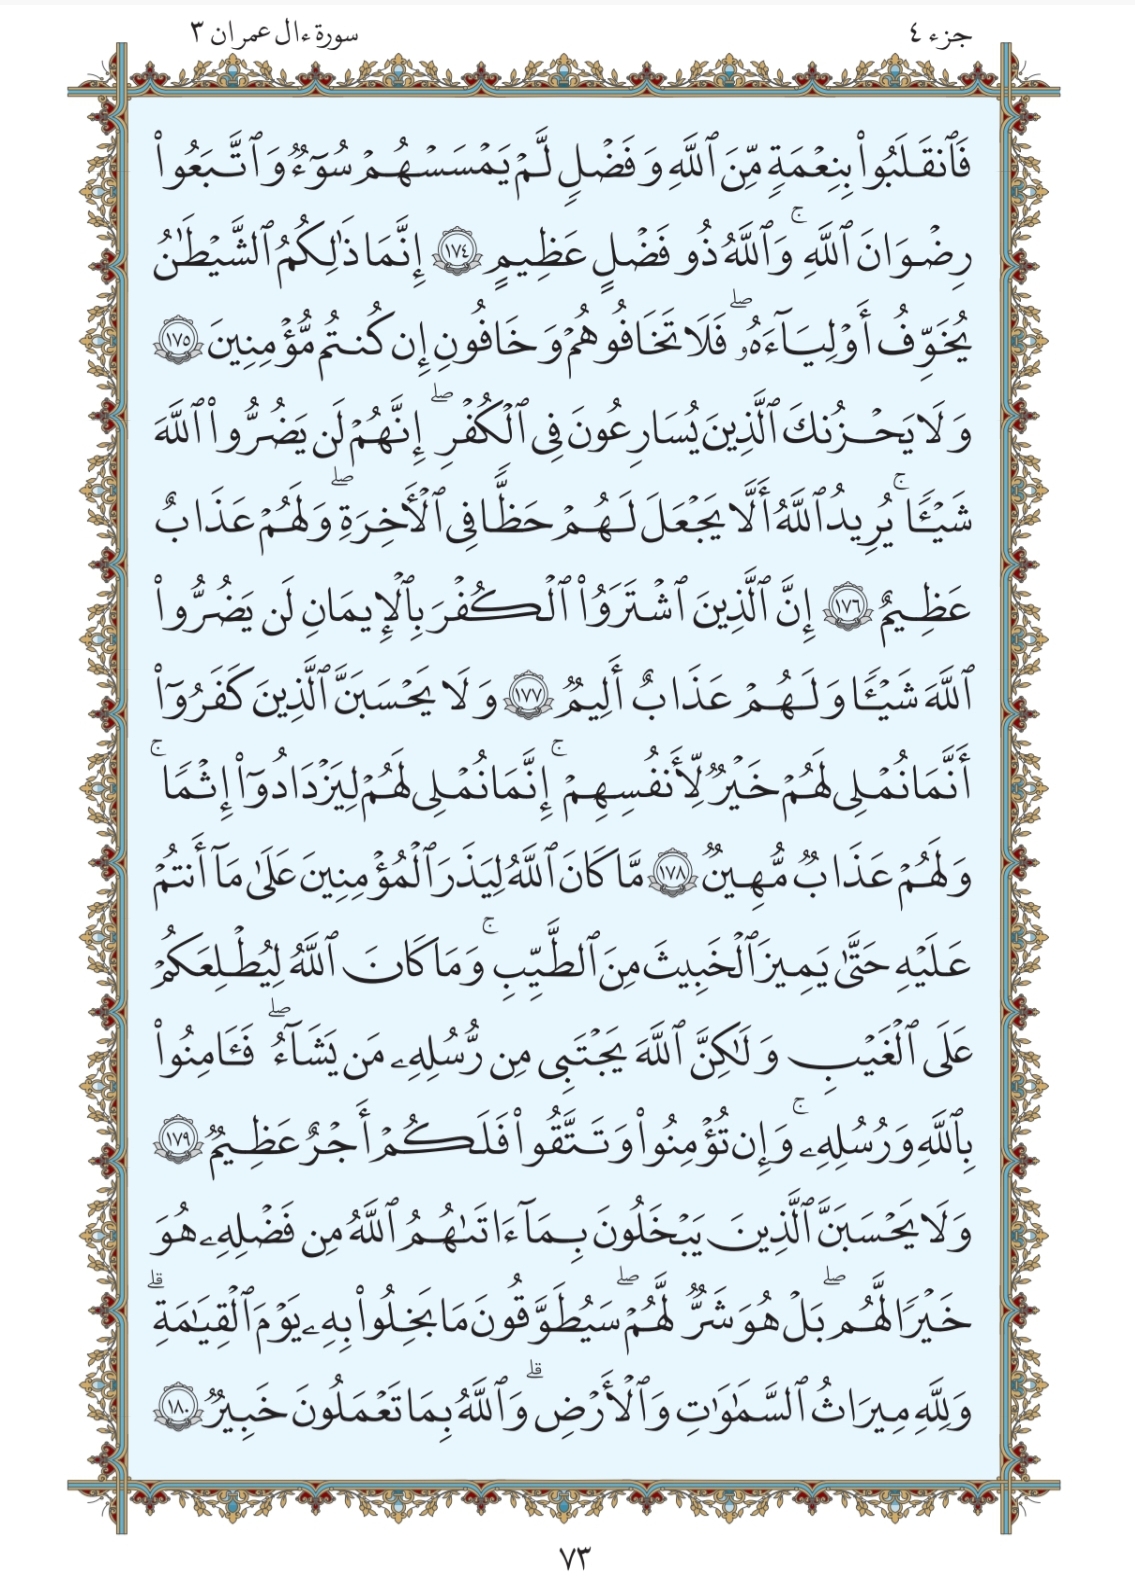 جزء ٤
سورة ءال عمران ٣
فَٱنقَلَبُواْ بِنِعۡمَةٖ مِّنَ ٱللَّهِ وَفَضۡلٖ لَّمۡ يَمۡسَسۡهُمۡ سُوٓءٞ وَٱتَّبَعُواْ
رِضۡوَٰنَ ٱللَّهِۗ وَٱللَّهُ ذُو فَضۡلٍ عَظِيمٍ ١٧٤ إِنَّمَا ذَٰلِكُمُ ٱلشَّيۡطَٰنُ
يُخَوِّفُ أَوۡلِيَآءَهُۥۖ فَلَا تَخَافُوهُمۡ وَخَافُونِ إِن كُنتُم مُّؤۡمِنِينَ ١٧٥
وَلَا يَحۡزُنكَ ٱلَّذِينَ يُسَٰرِعُونَ فِي ٱلۡكُفۡرِۖ إِنَّهُمۡ لَن يَضُرُّواْ ٱللَّهَ
شَيۡـٔٗاۚ يُرِيدُ ٱللَّهُ أَلَّا يَجۡعَلَ لَهُمۡ حَظّٗا فِي ٱلۡأٓخِرَةِۖ وَلَهُمۡ عَذَابٌ
عَظِيمٌ ١٧٦ إِنَّ ٱلَّذِينَ ٱشۡتَرَوُاْ ٱلۡكُفۡرَ بِٱلۡإِيمَٰنِ لَن يَضُرُّواْ
ٱللَّهَ شَيۡـٔٗا وَلَهُمۡ عَذَابٌ أَلِيمٞ ١٧٧ وَلَا يَحۡسَبَنَّ ٱلَّذِينَ كَفَرُوٓاْ
أَنَّمَا نُمۡلِي لَهُمۡ خَيۡرٞ لِّأَنفُسِهِمۡۚ إِنَّمَا نُمۡلِي لَهُمۡ لِيَزۡدَادُوٓاْ إِثۡمٗاۚ
وَلَهُمۡ عَذَابٞ مُّهِينٞ ١٧٨ مَّا كَانَ ٱللَّهُ لِيَذَرَ ٱلۡمُؤۡمِنِينَ عَلَىٰ مَآ أَنتُمۡ
عَلَيۡهِ حَتَّىٰ يَمِيزَ ٱلۡخَبِيثَ مِنَ ٱلطَّيِّبِۚ وَمَا كَانَ ٱللَّهُ لِيُطۡلِعَكُمۡ
عَلَى ٱلۡغَيۡبِ وَلَٰكِنَّ ٱللَّهَ يَجۡتَبِي مِن رُّسُلِهِۦ مَن يَشَآءُۖ فَـَٔامِنُواْ
بِٱللَّهِ وَرُسُلِهِۦۚ وَإِن تُؤۡمِنُواْ وَتَتَّقُواْ فَلَكُمۡ أَجۡرٌ عَظِيمٞ ١٧٩
وَلَا يَحۡسَبَنَّ ٱلَّذِينَ يَبۡخَلُونَ بِمَآ ءَاتَىٰهُمُ ٱللَّهُ مِن فَضۡلِهِۦ هُوَ
خَيۡرٗا لَّهُمۖ بَلۡ هُوَ شَرّٞ لَّهُمۡۖ سَيُطَوَّقُونَ مَا بَخِلُواْ بِهِۦ يَوۡمَ ٱلۡقِيَٰمَةِۗ
وَلِلَّهِ مِيرَٰثُ ٱلسَّمَٰوَٰتِ وَٱلۡأَرۡضِۗ وَٱللَّهُ بِمَا تَعۡمَلُونَ خَبِيرٞ ١٨٠
٧٣